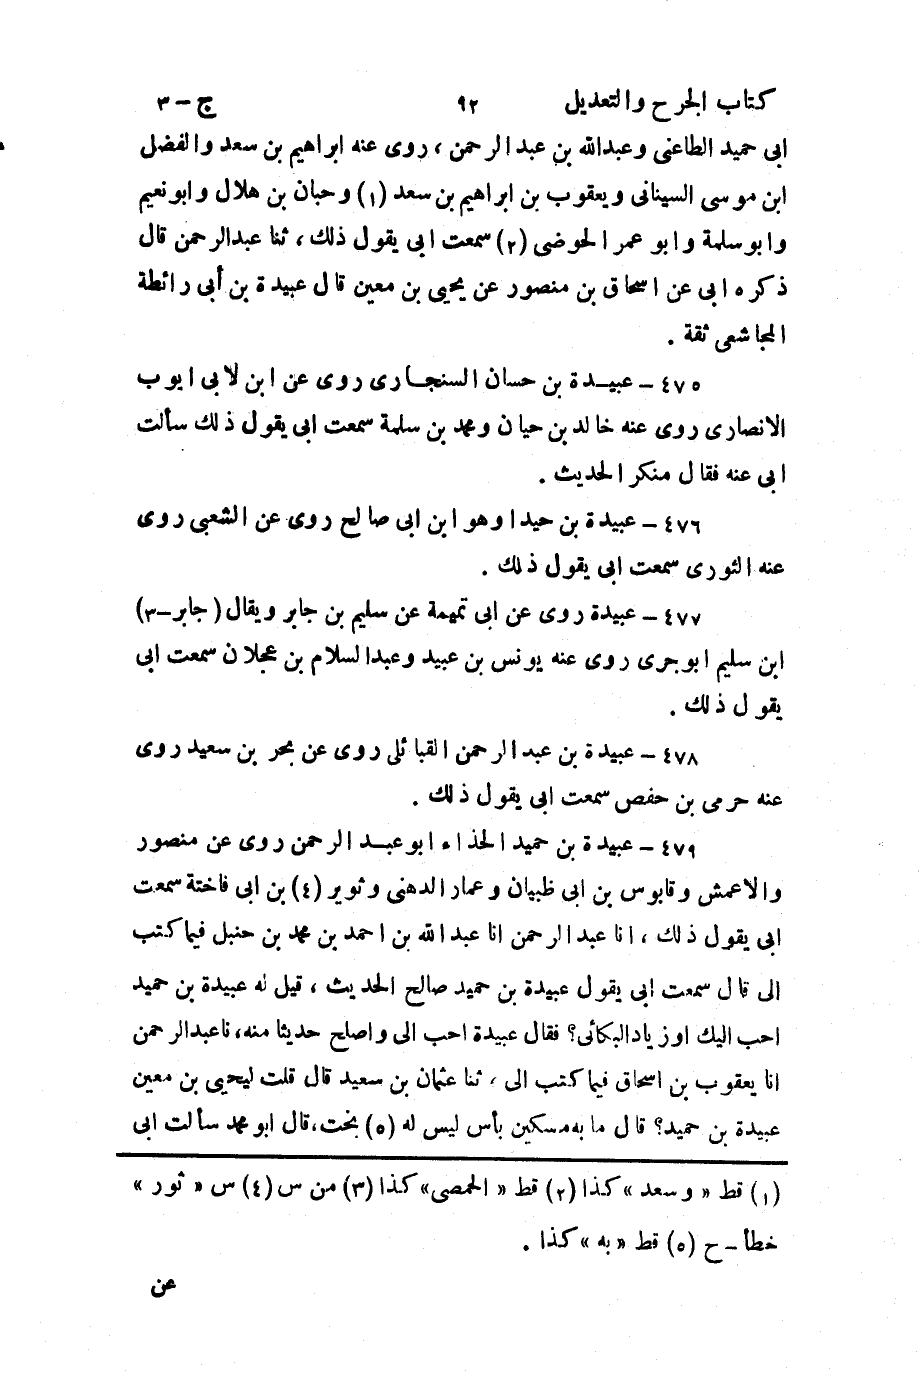 كتاب الجرح والتعديل ٩٢ ج - ٣
ابى حميد الطاعنى وعبدالله بن عبد الرحمن، روى عنه ابراهيم بن سعد والفضل
ابن موسى السينانى ويعقوب بن ابراهيم بن سعد (١) وحبان بن هلال وابونعيم
وابوسلمة وابو عمر الحوضى (٢) سمعت ابى يقول ذلك، ثنا عبدالرحمن قال
ذكره ابى عن اسحاق بن منصور عن يحيى بن معين قال عبيدة بن أبى رائطة
المجاشعى ثقة.
٤٧٥ - عبيدة بن حسان السنجارى روى عن ابن لابى ايوب
الانصارى روى عنه خالد بن حيان ومحمد بن سلمة سمعت ابى يقول ذلك سألت
ابى عنه فقال منكر الحديث.
٤٧٦ - عبيدة بن حيدا وهو ابن ابى صالح روى عن الشعبى روى
عنه الثورى سمعت ابى يقول ذلك.
٤٧٧ - عبيدة روى عن ابى تميمة عن سليم بن جابر ويقال (جابر-٣)
ابن سليم ابوجرى روى عنه يونس بن عبيد وعبدالسلام بن عجلان سمعت ابى
يقول ذلك.
٤٧٨ - عبيدة بن عبد الرحمن القبائلى روى عن بحر بن سعيد روى
عنه حرمى بن حفص سمعت ابى يقول ذلك.
٤٧٩ - عبيدة بن حميد الحذاء ابوعبد الرحمن روى عن منصور
والاعمش وقابوس بن ابى ظبيان وعمار الدهنى وثوير (٤) بن ابى فاختة سمعت
ابى يقول ذلك، انا عبد الرحمن انا عبد الله بن احمد بن محمد بن حنبل فيما كتب
الى قال سمعت ابى يقول عبيدة بن حميد صالح الحديث، قيل له عبيدة بن حميد
احب اليك اوزيادالبكائى؟ فقال عبيدة احب الى واصلح حديثا منه، ناعبدالرحمن
انا يعقوب بن اسحاق فيما كتب الى، ثنا عثمان بن سعيد قال قلت ليحيى بن معين
عبيدة بن حميد؟ قال ما به مسكين بأس ليس له (٥) بخت، قال ابو محمد سألت ابى
(١) قط «وسعد» كذا (٢) قط «الحمصى» كذا (٣) من س (٤) س «ثور»
خطأ - ح (٥) قط «به» كذا.
عن